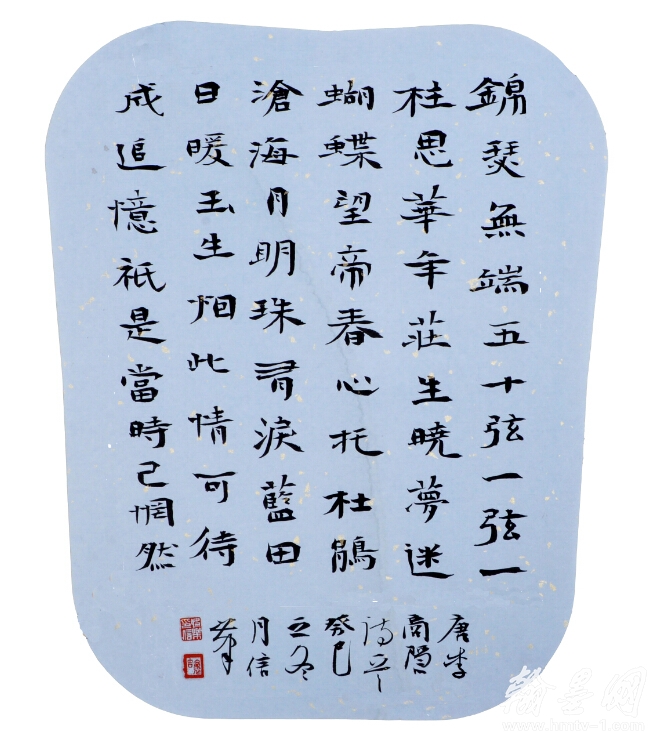 錦瑟無端五十弦一弦一
柱思華年莊生曉夢迷
蝴蝶望帝春心托杜鵑
滄海月明珠有淚藍田
日暖玉生烟此情可待
成追憶祇是當時已惘然
唐李
商隐
诗
癸巳
之冬
月信
翰墨网